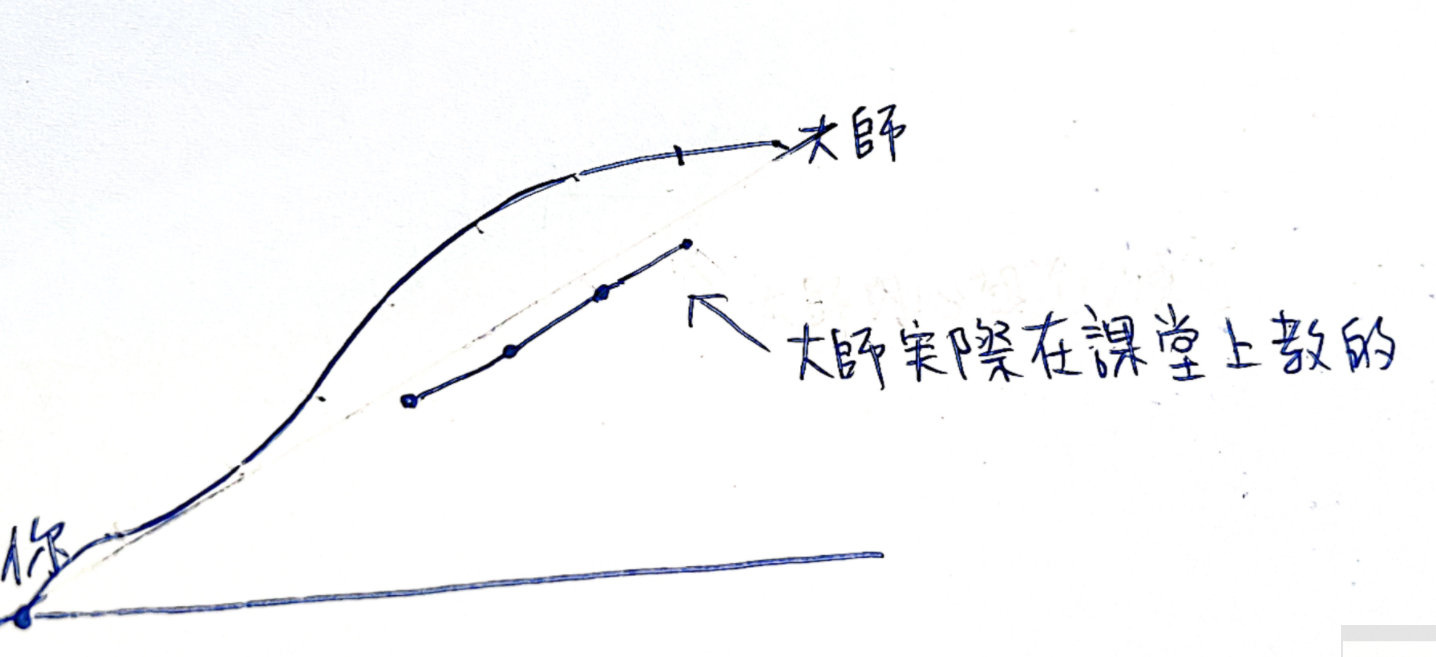 大師
大師実際在課堂上教的
你